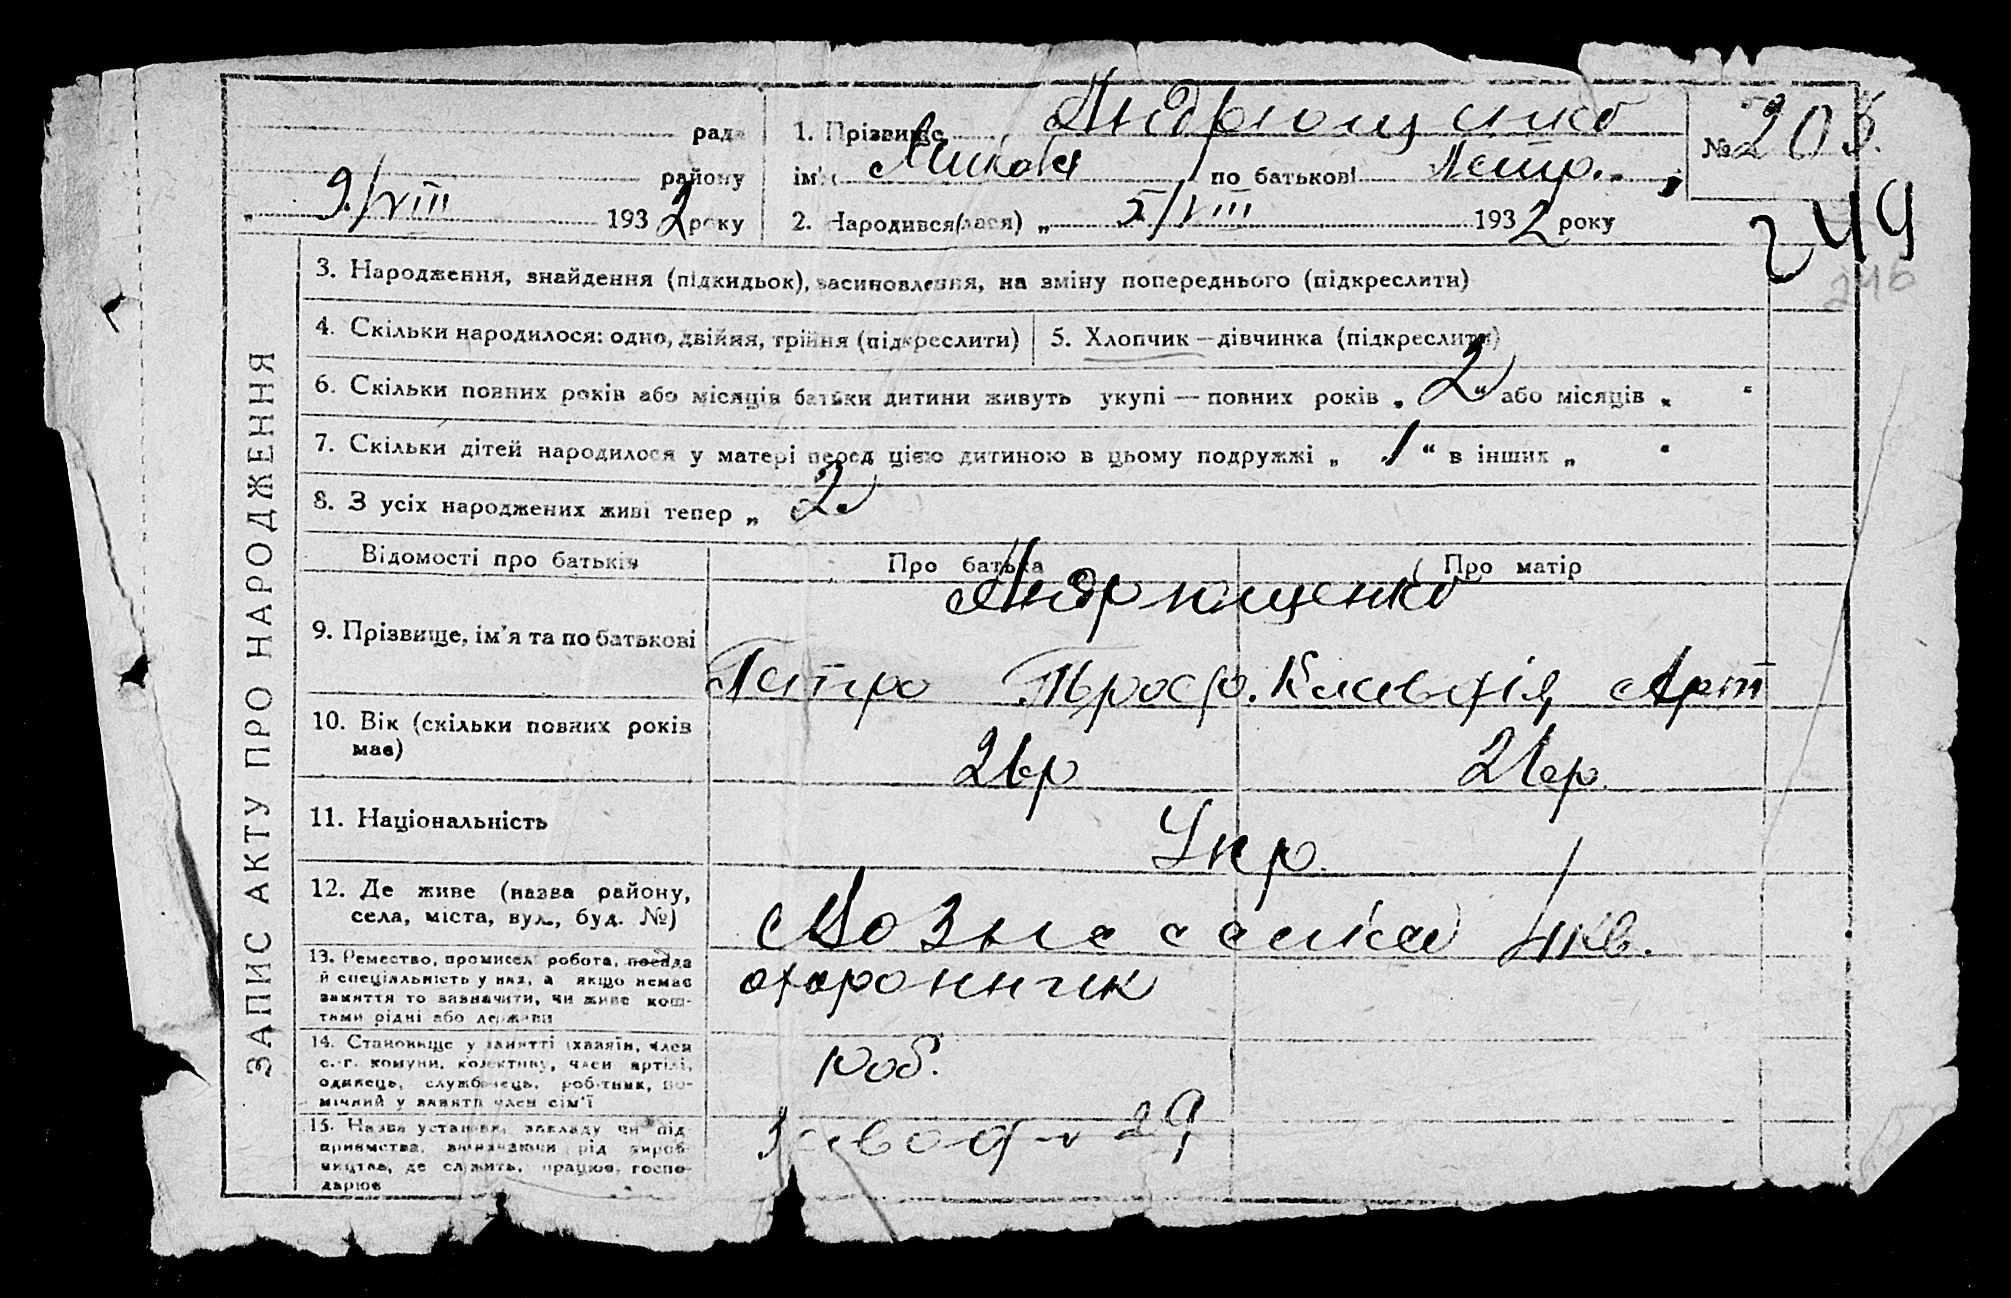 рада
району
„ 9/VIII 1932 року
1. Прізвище Андрющенко
ім'я Микола по батькові Петр.
2. Народився(лася) „ 5/VIII 1932 року
№ 203
249
246
ЗАПИС АКТУ ПРО НАРОДЖЕННЯ
3. Народження, знайдення (підкидьок), засиновлення, на зміну попереднього (підкреслити)
4. Скільки народилося: одно, двійня, трійня (підкреслити)
5. Хлопчик — дівчинка (підкреслити)
6. Скільки повних років або місяців батьки дитини живуть укупі — повних років „ 2 “ або місяців „ “
7. Скільки дітей народилося у матері перед цією дитиною в цьому подружжі „ 1 “ в інших „ “
8. З усіх народжених живі тепер „ 2
Відомості про батьків
Про батька
Про матір
9. Прізвище, ім'я та по батькові
Андрющенко
Петро Троф. Клавдія Арт
10. Вік (скільки повних років
має)
26р
21 р.
11. Національність
Укр.
12. Де живе (назва району,
села, міста, вул., буд. №)
Вознесенка
13. Ремество, промисел робота, посада
й спеціяльність у них, а якщо немає
заняття то зазначити, чи живе кош-
тами рідні або держави
охоронник
14. Становище у занятті (хазяїн, член
с.-г. комуни, колективу, член артілі,
одинець, службовець, робітник, по-
мічний у занятті член сім'ї
роб.
15. Назва установи, закладу чи під-
приємства, визначаючи рід вироб-
ництва, де служить, працює, госпо-
дарює
Завод № 29